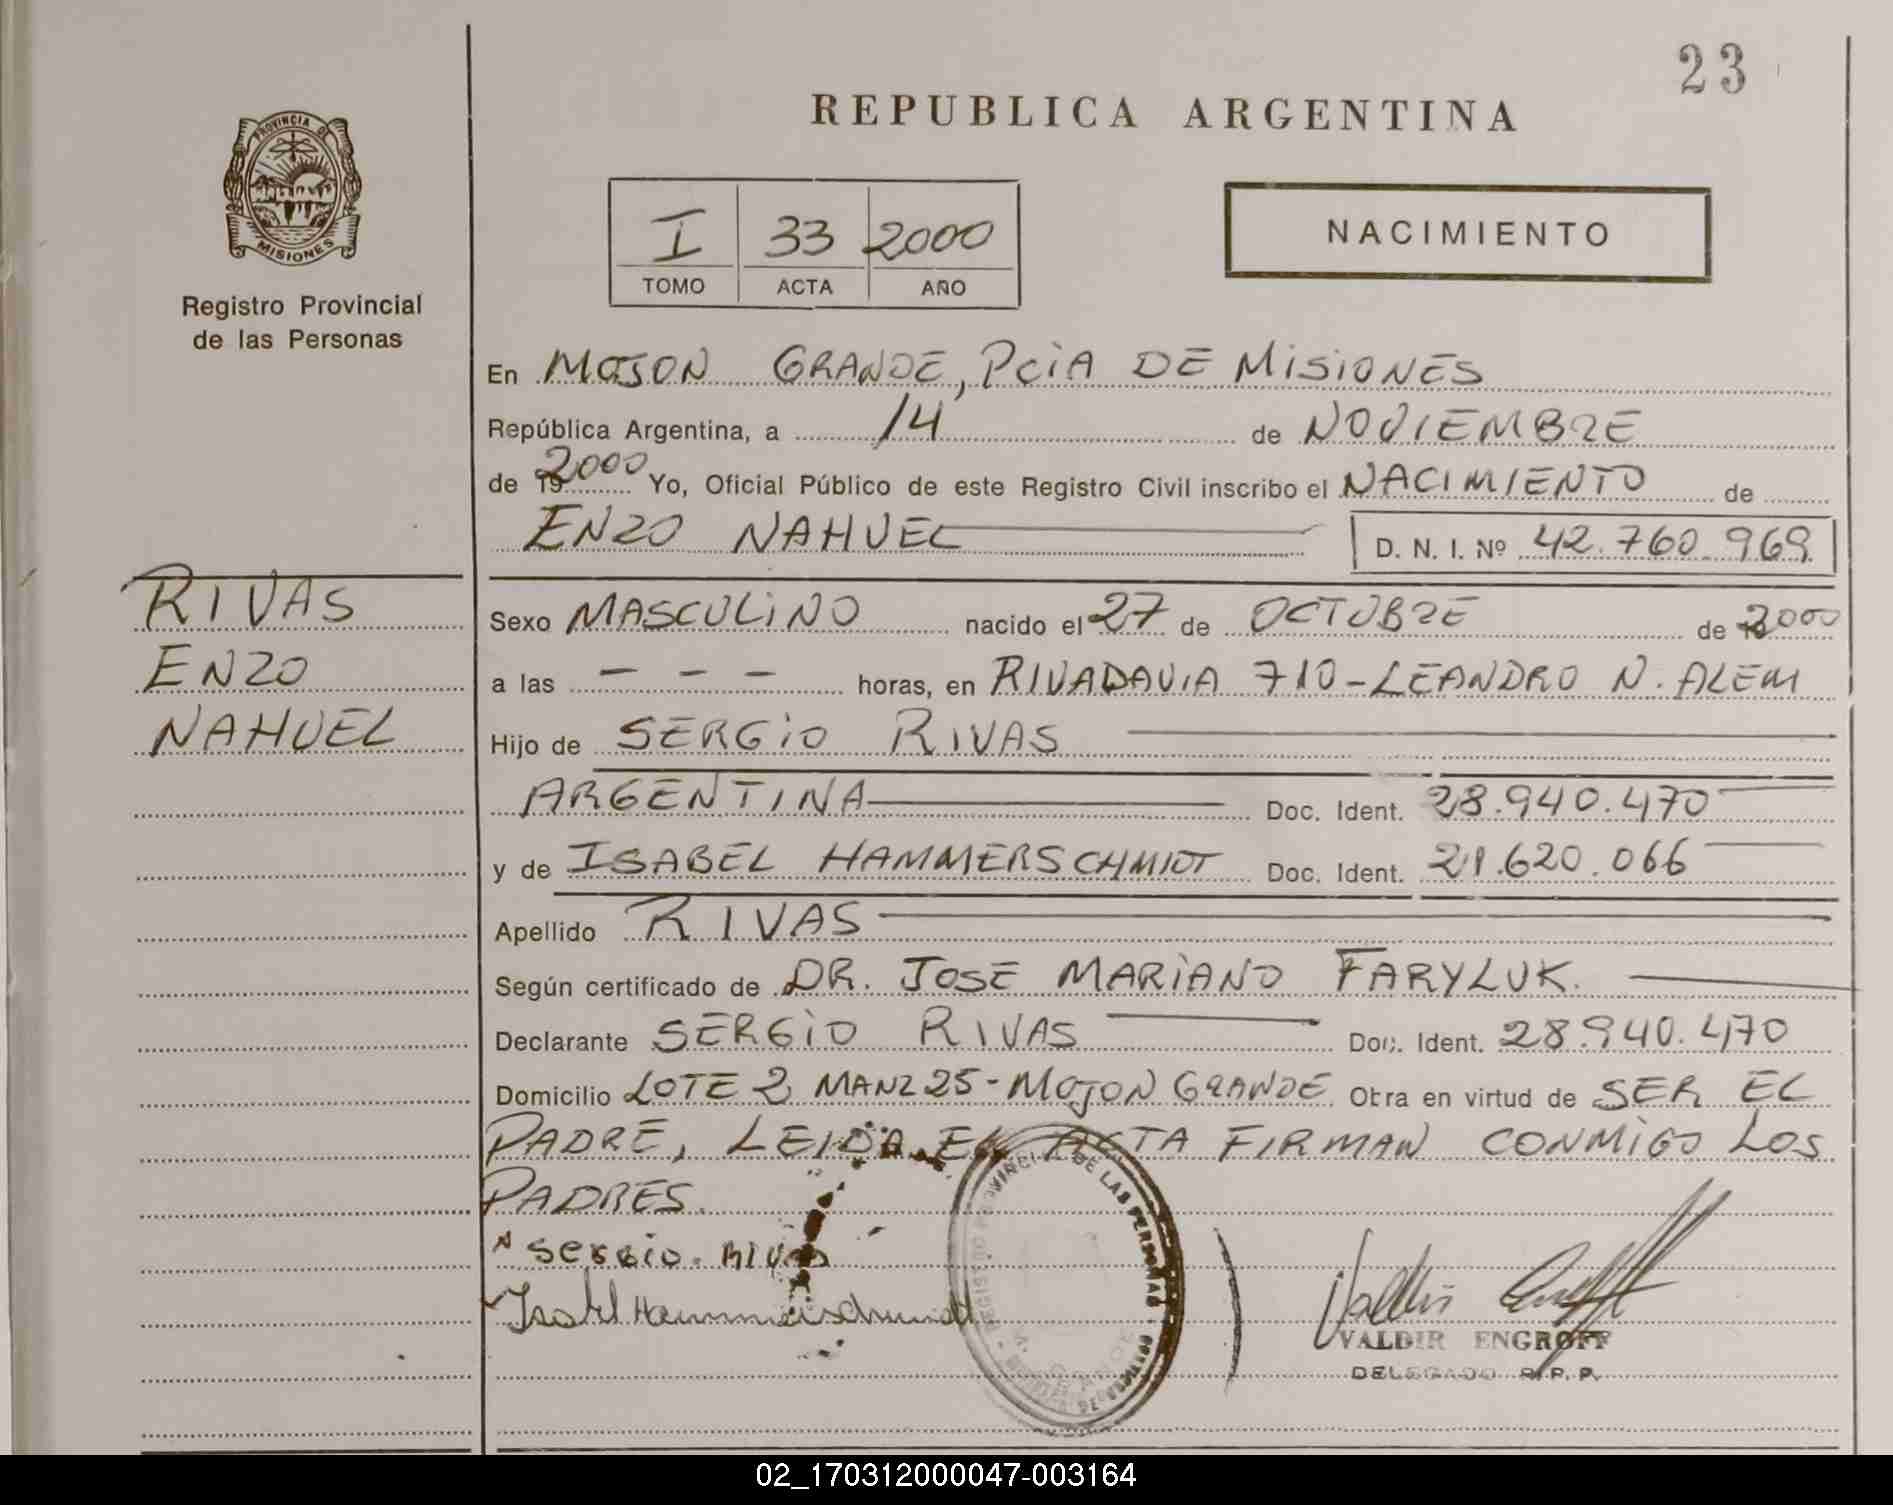 23
REPUBLICA ARGENTINA
PROVINCIA DE
MISIONES
Registro Provincial
de las Personas
I 33 2000
TOMO ACTA AÑO
NACIMIENTO
En MOJON GRANDE, PCIA DE MISIONES
República Argentina, a 14 de NOVIEMBRE
de 2000 Yo, Oficial Público de este Registro Civil inscribo el NACIMIENTO de
ENZO NAHUEL D. N. I. Nº 42.760.969
RIVAS
ENZO
NAHUEL
Sexo MASCULINO nacido el 27 de OCTUBRE de 2000
a las - - - horas, en RIVADAVIA 710 - LEANDRO N. ALEM
Hijo de SERGIO RIVAS
ARGENTINA Doc. Ident. 28.940.470
y de ISABEL HAMMERSCHMIDT Doc. Ident. 21.620.066
Apellido RIVAS
Según certificado de DR. JOSE MARIANO FARYLUK.
Declarante SERGIO RIVAS Doc. Ident. 28.940.470
Domicilio LOTE 2 MANZ 25 - MOJON GRANDE Obra en virtud de SER EL
PADRE, LEIDA EL ACTA FIRMAN CONMIGO LOS
PADRES.
Sergio. Rivas
Isabel Hammerschmidt
REGISTRO PROVINCIAL DE LAS PERSONAS
VALDIR ENGROFF
DELEGADO R.P.P.
02_170312000047-003164